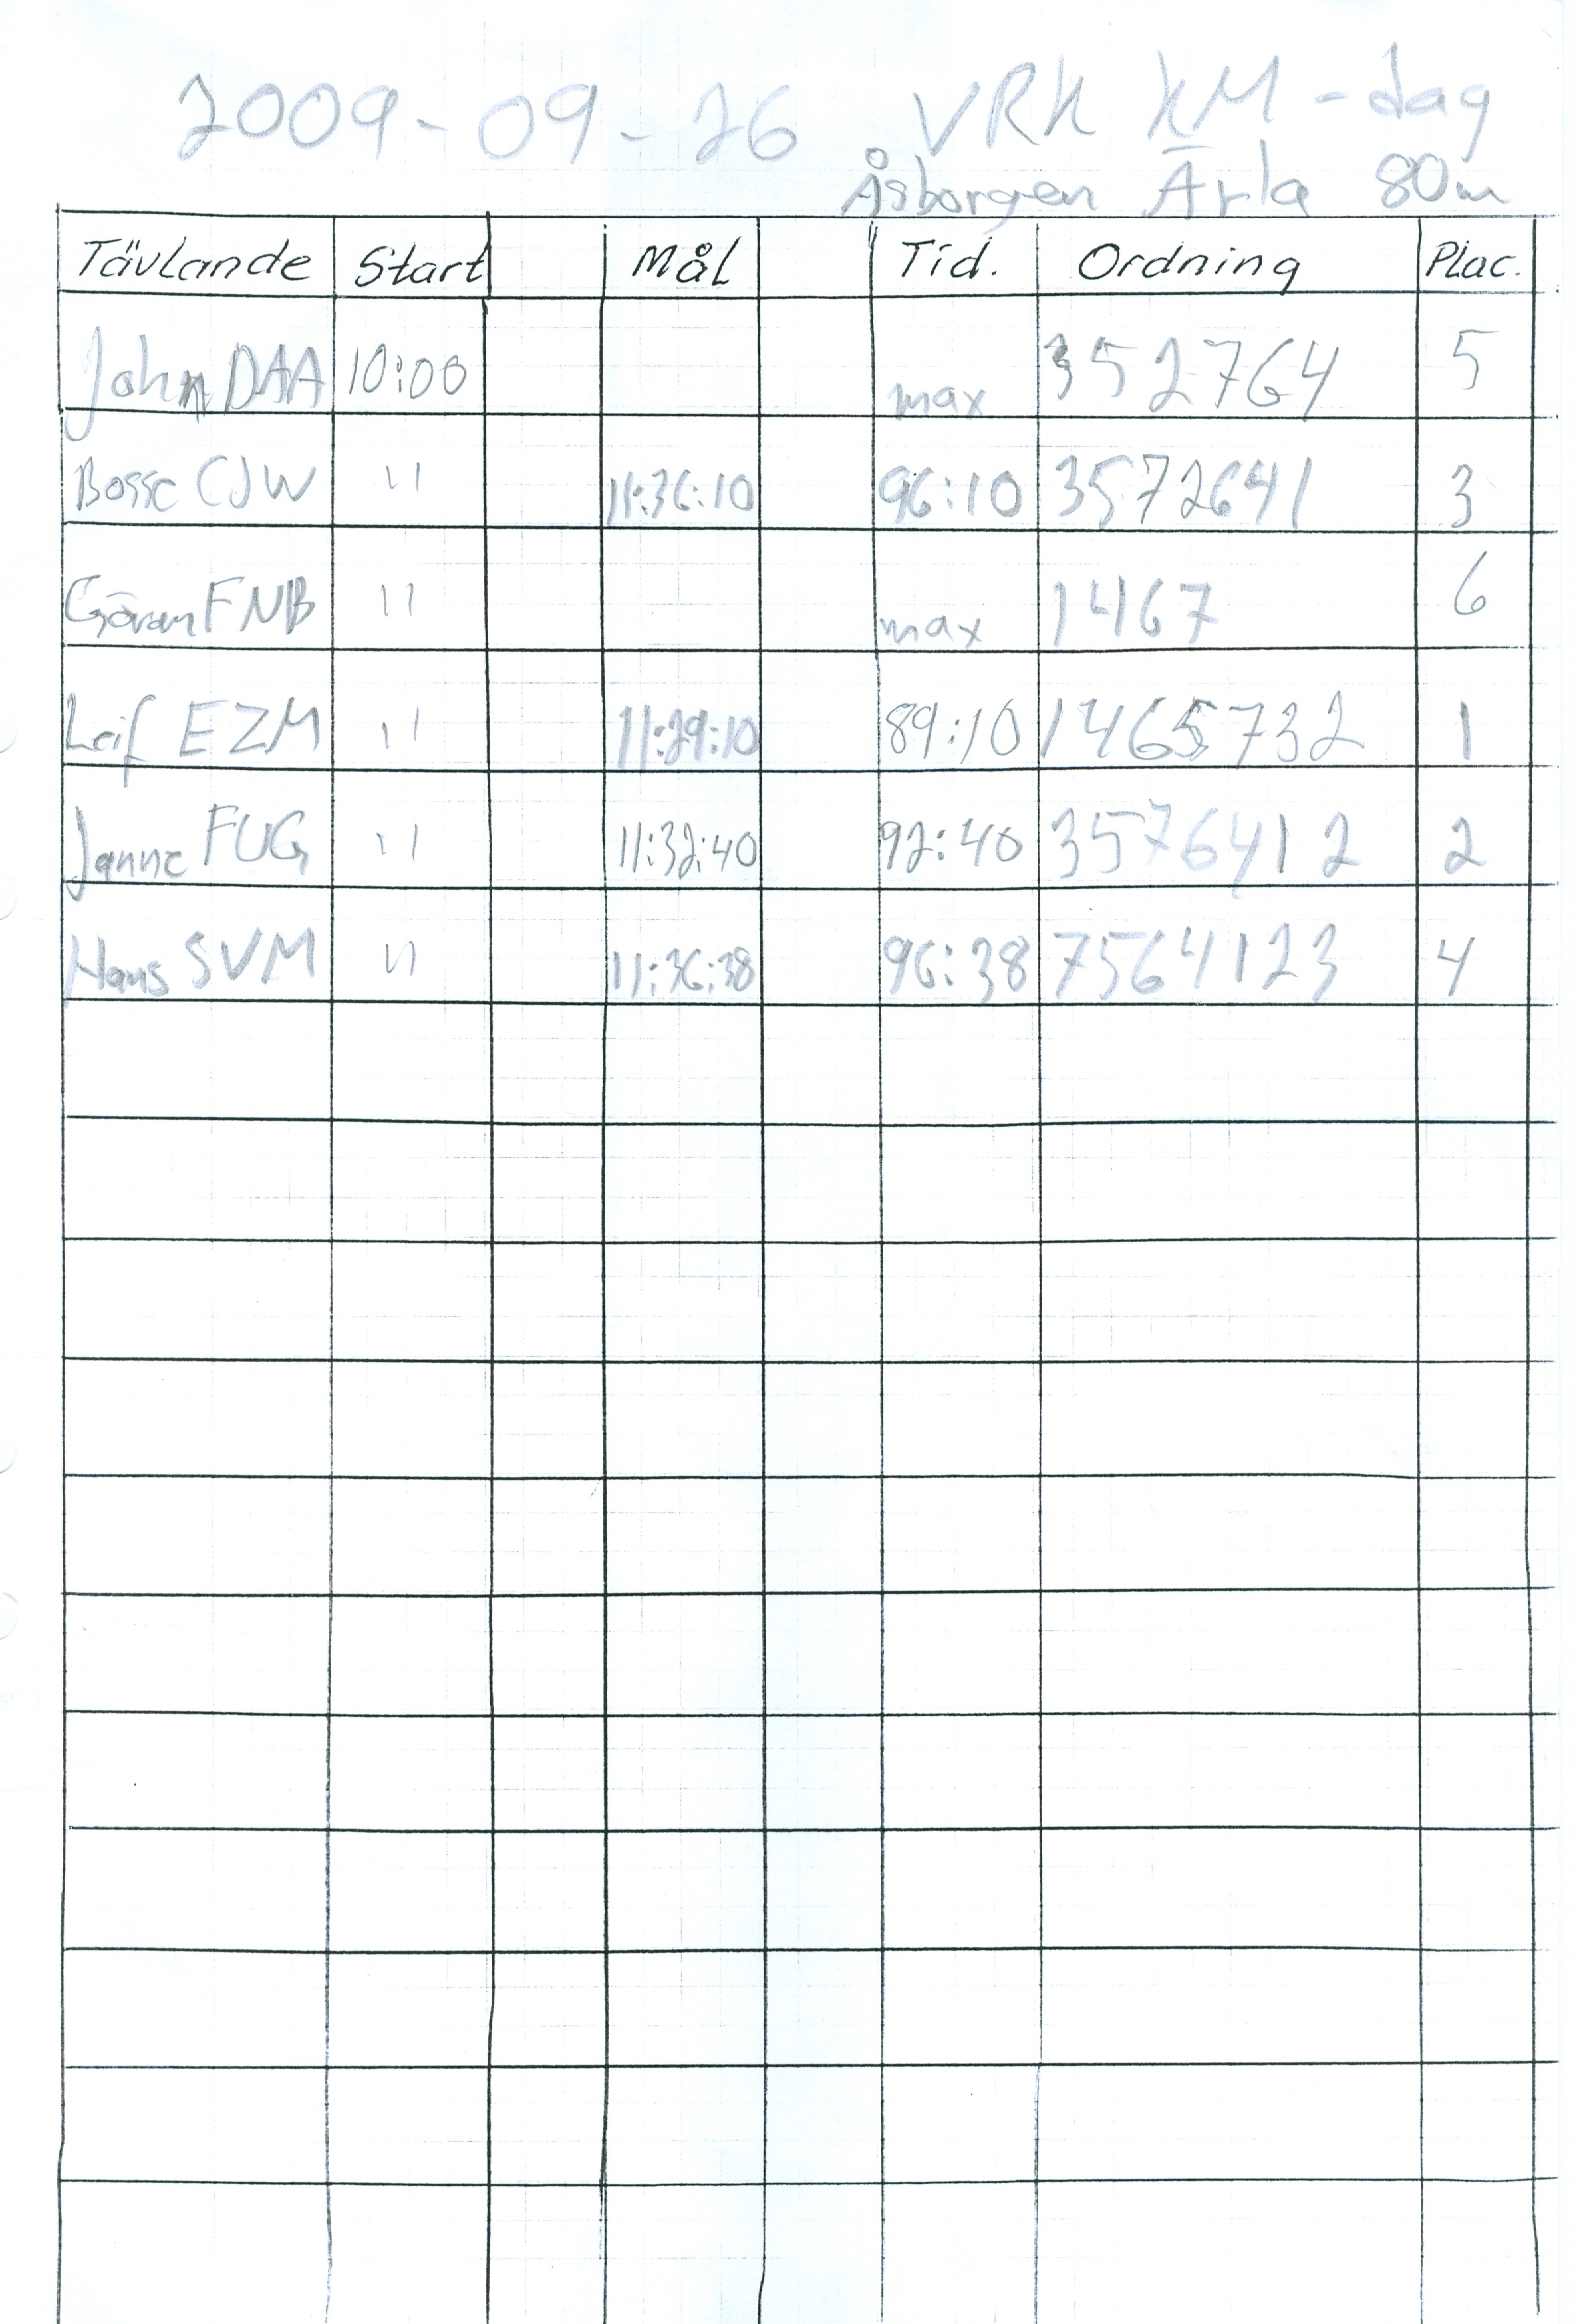 2009-09-26 VRK KM-dag
Åsborgen Ärla 80m
Tävlande Start Mål Tid. Ordning Plac.
John DAA 10:00 max 352764 5
Bosse CJW " 11:36:10 96:10 3572641 3
Göran FNB " max 1467 6
Leif EZM " 11:29:10 89:10 1465732 1
Janne FUG " 11:32:40 92:40 3576412 2
Hans SVM " 11:36:38 96:38 7564123 4